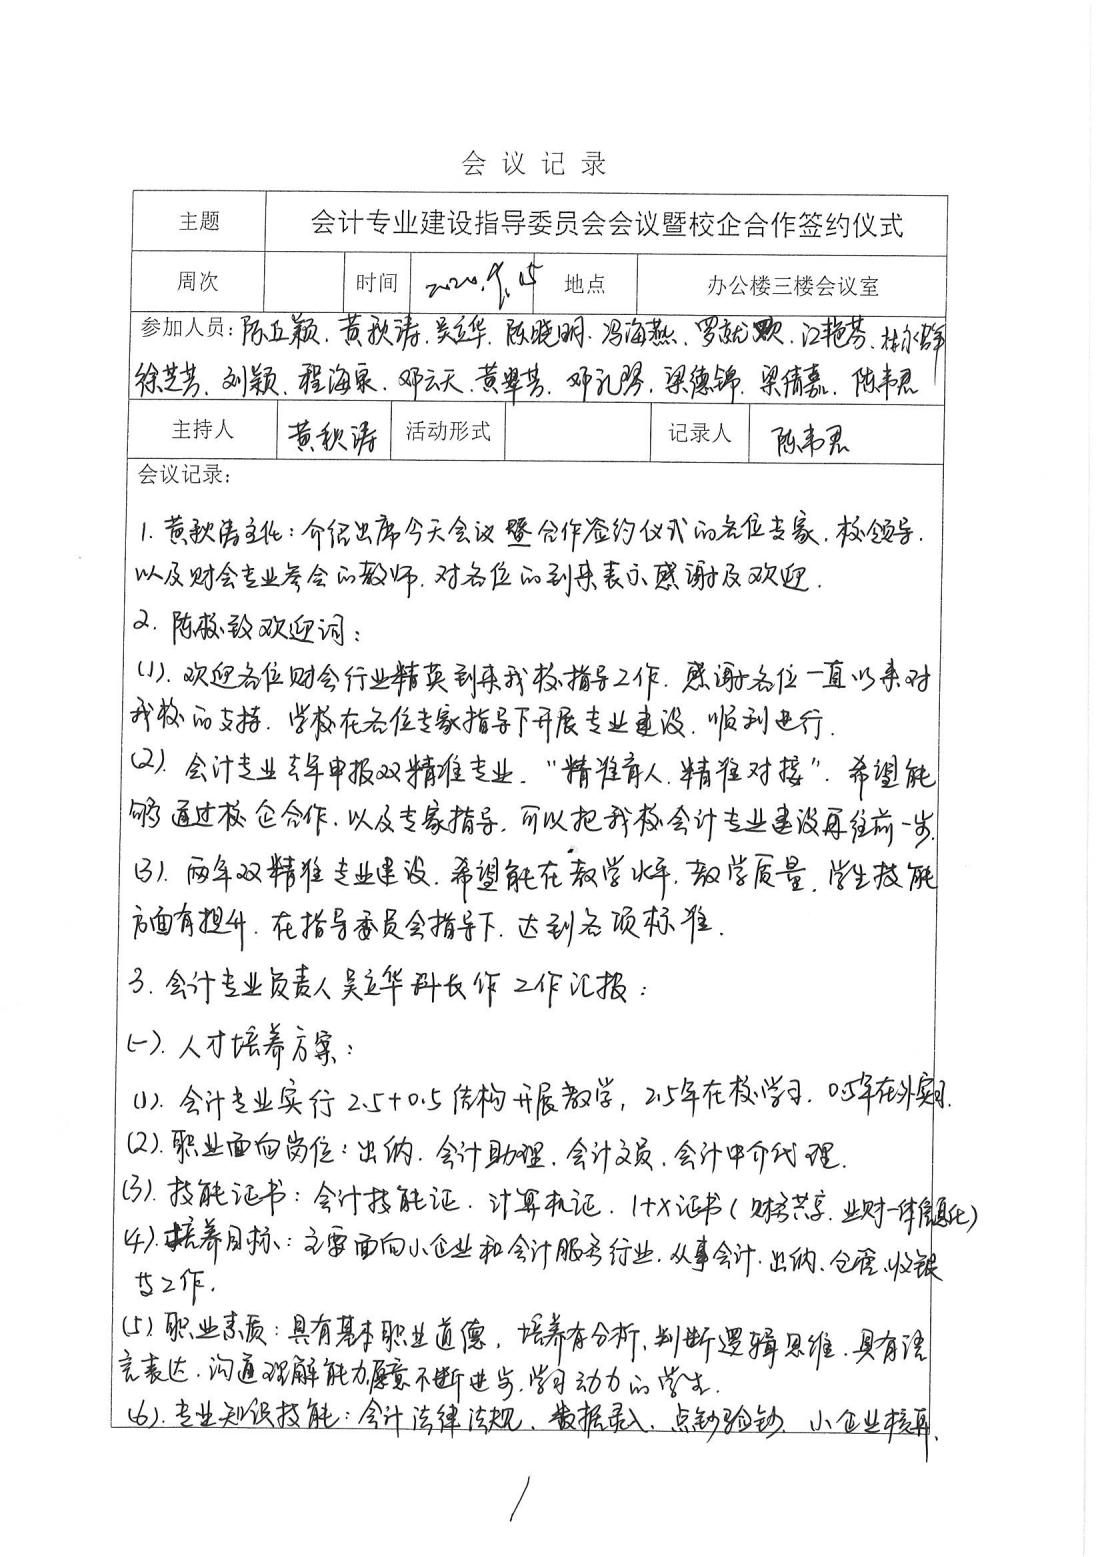 会议记录
主题 会计专业建设指导委员会会议暨校企合作签约仪式
周次 时间 2020.9.15 地点 办公楼三楼会议室
参加人员: 陈丘颖、黄秋涛、吴立华、陈晓明、冯海燕、罗就、江艳芬、杜永
徐芝芳、刘颖、程海泉、邓云天、黄翠芳、邓礼琴、梁德锦、梁倩嘉、陈韦君
主持人 黄秋涛 活动形式 记录人 陈韦君
会议记录:
1. 黄秋涛主任:介绍出席今天会议暨合作签约仪式的各位专家、校领导、
以及财会专业参会的教师,对各位的到来表示感谢及欢迎.
2. 陈校致欢迎词:
(1). 欢迎各位财会行业精英到来我校指导工作,感谢各位一直以来对
我校的支持,学校在各位专家指导下开展专业建设,顺利进行.
(2). 会计专业去年申报双精准专业,“精准育人,精准对接”,希望能
够通过校企合作,以及专家指导,可以把我校会计专业建设再往前一步.
(3). 两年双精准专业建设,希望能在教学水平,教学质量,学生技能
方面有提升,在指导委员会指导下,达到各项标准.
3. 会计专业负责人吴立华科长作工作汇报:
(一). 人才培养方案:
(1). 会计专业实行2.5+0.5结构开展教学,2.5年在校学习,0.5年在外实习.
(2). 职业面向岗位:出纳、会计助理、会计文员、会计中介代理.
(3). 技能证书:会计技能证、计算机证、1+X证书(财务共享、业财一体信息化)
(4). 培养目标:主要面向小企业和会计服务行业,从事会计、出纳、仓管、收银
等工作.
(5). 职业素质:具有基本职业道德,培养有分析、判断逻辑思维,具有语
言表达、沟通理解能力,愿意不断进步,学习动力的学生.
(6). 专业知识技能:会计法律法规、数据录入、点钞验钞、小企业核算、
1